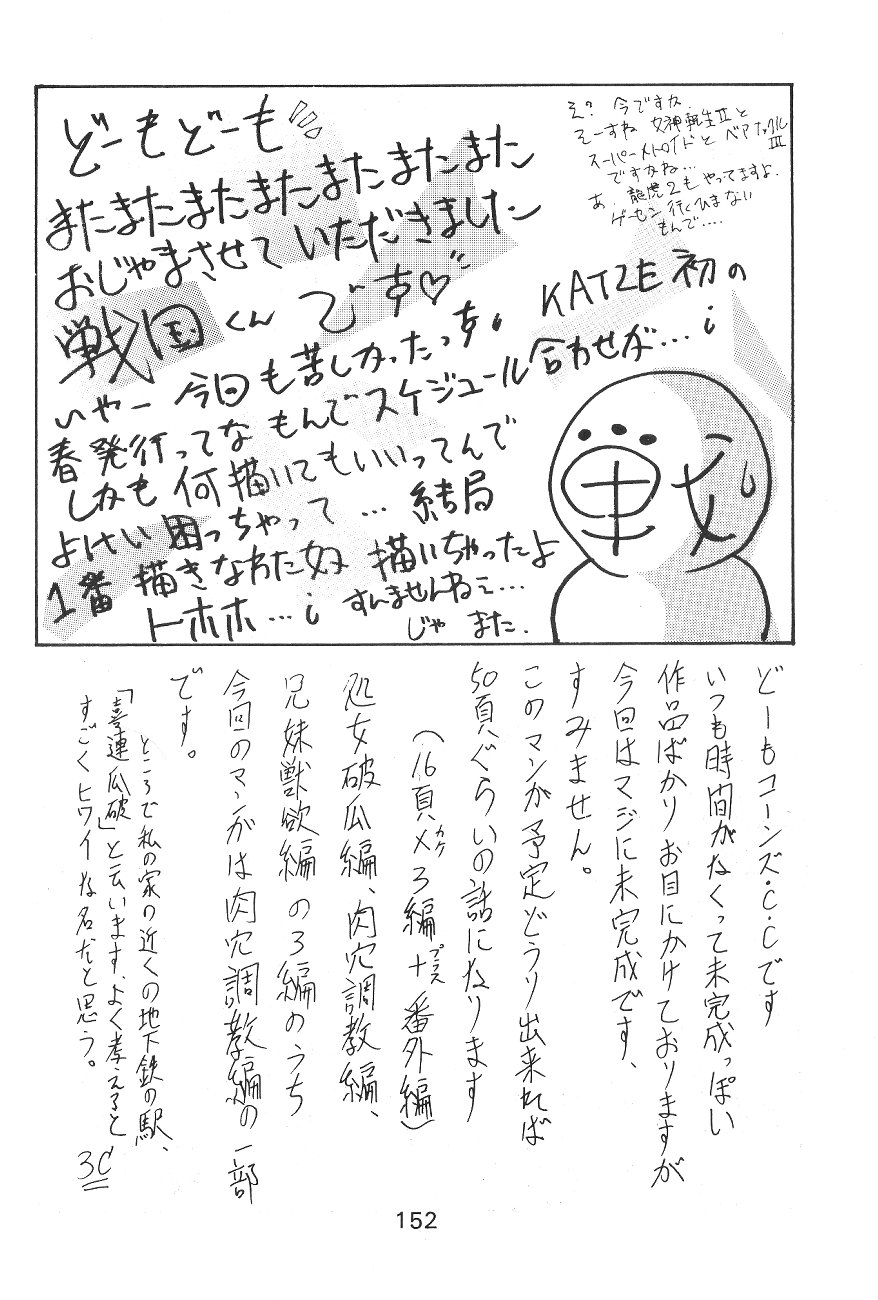 どーもどーも
またまたまたまたまたまたまた
おじゃまさせていただきました
戦国くんです♡
いやー今回も苦しかったっす。KATZE初の
春発行ってなもんでスケジュール合わせが…
しかも何描いてもいいってんで
よけい困っちゃって…結局
1番描きなれた奴描いちゃったよ
トホホ…
すんませんねェ…
じゃまた.
え?今ですか.
そーすね 女神転生Ⅱと
スーパーメトロイドとベアナックルⅢ
ですかね…
あ、龍虎2もやってますよ.
ゲーセン行くひまない
もんで....
どーもコーンズ・C・Cです
いつも時間がなくって未完成っぽい
作品ばかりお目にかけておりますが
今回はマジに未完成です、
すみません。
このマンガ予定どうり出来れば
50頁ぐらいの話になります
(16頁×カケ3編+プラス番外編)
処女破瓜編、肉穴調教編、
兄妹獣欲編の3編のうち
今回のマンガは肉穴調教編の一部
です。
ところで私の家の近くの地下鉄の駅、
「喜連瓜破」と云います、よく考えると
すごくヒワイな名だと思う。
3C
152